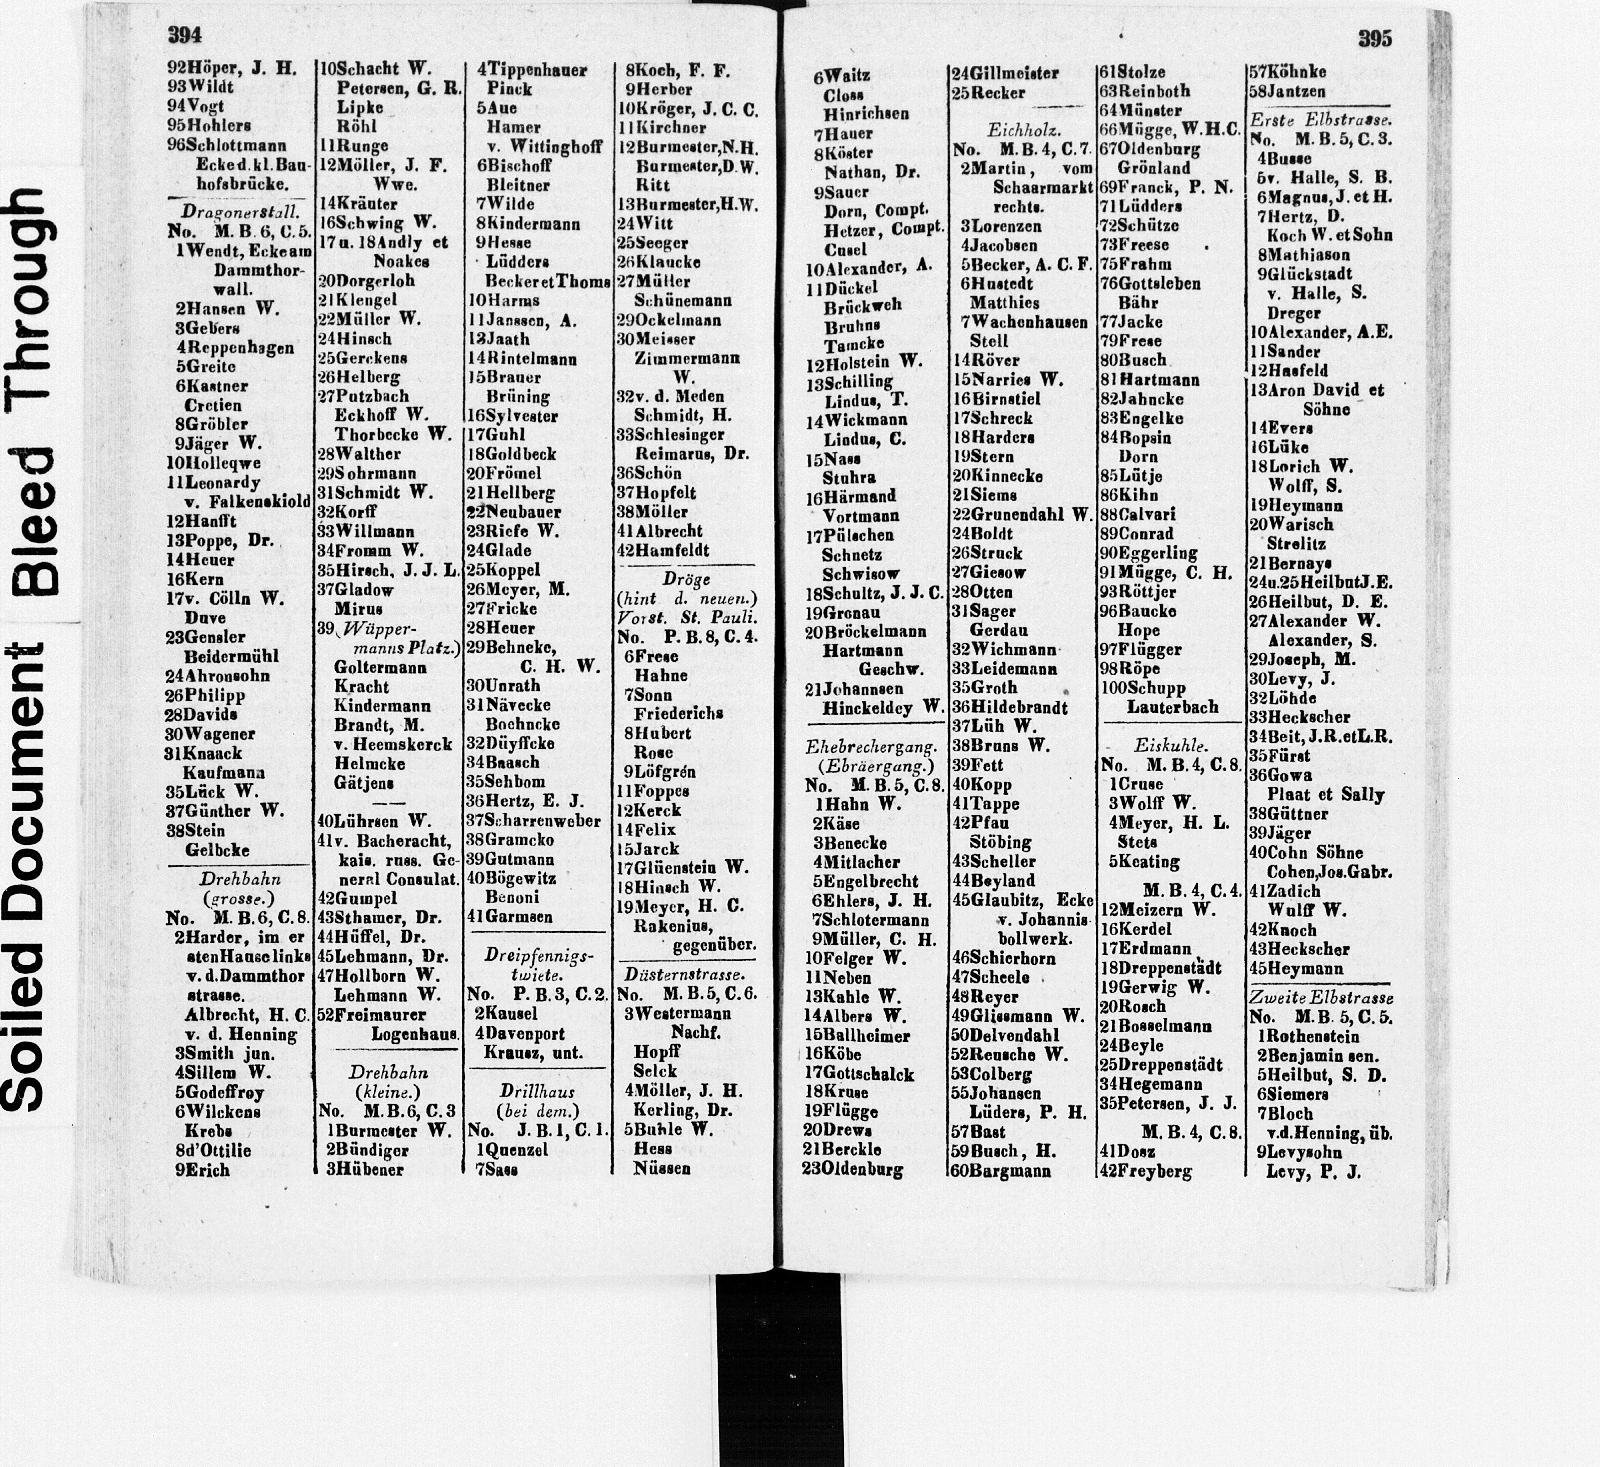 Soiled Document Bleed Through
394
92Höper, J. H.
93Wildt
94Vogt
95Hohlers
96Schlottmann
Ecke d. kl. Bau-
hofsbrücke.
Dragonerstall.
No. M. B. 6, C. 5.
1Wendt, Ecke am
Dammthor-
wall.
2Hansen W.
3Gebers
4Reppenhagen
5Greite
6Kastner
Cretien
8Gröbler
9Jäger W.
10Holleqwe
11Leonardy
v. Falkenskiold
12Hanfft
13Poppe, Dr.
14Heuer
16Kern
17v. Cölln W.
Duve
23Gensler
Beidermühl
24Ahronsohn
26Philipp
28Davids
30Wagener
31Knaack
Kaufmann
35Lück W.
37Günther W.
38Stein
Gelbcke
Drehbahn
(grosse.)
No. M. B. 6, C. 8.
2Harder, im er
sten Hause links
v. d. Dammthor
strasse.
Albrecht, H. C.
v. d. Henning
3Smith jun.
4Sillem W.
5Godeffroy
6Wilckens
Krebs
8d'Ottilie
9Erich
10Schacht W.
Petersen, G. R.
Lipke
Röhl
11Runge
12Möller, J. F.
Wwe.
14Kräuter
16Schwing W.
17u. 18Andly et
Noakes
20Dorgerloh
21Klengel
22Müller W.
24Hinsch
25Gerckens
26Helberg
27Putzbach
Eckhoff W.
Thorbecke W.
28Walther
29Sohrmann
31Schmidt W.
32Korff
33Willmann
34Fromm W.
35Hirsch, J. J. L.
37Gladow
Mirus
39 Wüpper-
manns Platz.)
Goltermann
Kracht
Kindermann
Brandt, M.
v. Heemskerck
Helmcke
Gätjens
40Lührsen W.
41v. Bacheracht,
kais. russ. Ge-
neral Consulat.
42Gumpel
43Sthamer, Dr.
44Hüffel, Dr.
45Lehmann, Dr.
47Hollborn W.
Lehmann W.
52Freimaurer
Logenhaus.
Drehbahn
(kleine.)
No. M. B. 6, C. 3
1Burmester W.
2Bündiger
3Hübener
4Tippenhauer
Pinck
5Aue
Hamer
v. Wittinghoff
6Bischoff
Bleitner
7Wilde
8Kindermann
9Hesse
Lüdders
Becker et Thoms
10Harms
11Janssen, A.
13Jaath
14Rintelmann
15Brauer
Brüning
16Sylvester
17Guhl
18Goldbeck
20Frömel
21Hellberg
22Neubauer
23Riefe W.
24Glade
25Koppel
26Meyer, M.
27Fricke
28Heuer
29Behncke,
C. H. W.
30Unrath
31Nävecke
Boehncke
32Düyffcke
34Baasch
35Sehbom
36Hertz, E. J.
37Scharrenweber
38Gramcko
39Gutmann
40Bögewitz
Benoni
41Garmsen
Dreipfennigs-
twiete.
No. P. B. 3, C. 2.
2Kausel
4Davenport
Krausz, unt.
Drillhaus
(bei dem.)
No. J. B. 1, C. 1.
1Quenzel
7Sass
8Koch, F. F.
9Herber
10Kröger, J. C. C.
11Kirchner
12Burmester, N. H.
Burmester, D. W.
Ritt
13Burmester, H. W.
24Witt
25Seeger
26Klaucke
27Müller
Schünemann
29Ockelmann
30Meisser
Zimmermann
W.
32v. d. Meden
Schmidt, H.
33Schlesinger
Reimarus, Dr.
36Schön
37Hopfelt
38Möller
41Albrecht
42Hamfeldt
Dröge
(hint d. neuen.)
Vorst. St. Pauli.
No. P. B. 8, C. 4.
6Frese
Hahne
7Sonn
Friederichs
8Hubert
Rose
9Löfgrén
11Foppes
12Kerck
14Felix
15Jarck
17Glüenstein W.
18Hinsch W.
19Meyer, H. C.
Rakenius,
gegenüber.
Düsternstrasse.
No. M. B. 5, C. 6.
3Westermann
Nachf.
Hopff
Selck
4Möller, J. H.
Kerling, Dr.
5Buhle W.
Hess
Nüssen
395
6Waitz
Closs
Hinrichsen
7Hauer
8Köster
Nathan, Dr.
9Sauer
Dorn, Compt.
Hetzer, Compt.
Cusel
10Alexander, A.
11Dückel
Brückweh
Bruhns
Tamcke
12Holstein W.
13Schilling
Lindus, T.
14Wickmann
Lindus, C.
15Nass
Stuhra
16Härmand
Vortmann
17Pülschen
Schnetz
Schwisow
18Schultz, J. J. C.
19Gronau
20Bröckelmann
Hartmann
Geschw.
21Johannsen
Hinckeldey W.
Ehebrechergang.
(Ebräergang.)
No. M. B. 5, C. 8.
1Hahn W.
2Käse
3Benecke
4Mitlacher
5Engelbrecht
6Ehlers, J. H.
7Schlotermann
9Müller, C. H.
10Felger W.
11Neben
13Kahle W.
14Albers W.
15Ballheimer
16Köbe
17Gottschalck
18Kruse
19Flügge
20Drews
21Berckle
23Oldenburg
24Gillmeister
25Recker
Eichholz.
No. M. B. 4, C. 7.
2Martin, vom
Schaarmarkt
rechts.
3Lorenzen
4Jacobsen
5Becker, A. C. F.
6Hustedt
Matthies
7Wachenhausen
Stell
14Röver
15Narries W.
16Birnstiel
17Schreck
18Harders
19Stern
20Kinnecke
21Siems
22Grunendahl W.
24Boldt
26Struck
27Giesow
28Otten
31Sager
Gerdau
32Wichmann
33Leidemann
35Groth
36Hildebrandt
37Lüh W.
38Bruns W.
39Fett
40Kopp
41Tappe
42Pfau
Stöbing
43Scheller
44Beyland
45Glaubitz, Ecke
v. Johannis-
bollwerk.
46Schierhorn
47Scheele
48Reyer
49Glissmann W.
50Delvendahl
52Reusche W.
53Colberg
55Johansen
Lüders, P. H.
57Bast
59Busch, H.
60Bargmann
61Stolze
63Reinboth
64Münster
66Mügge, W. H. C.
67Oldenburg
Grönland
69Franck, P. N.
71Lüdders
72Schütze
73Freese
75Frahm
76Gottsleben
Bähr
77Jacke
79Frese
80Busch
81Hartmann
82Jahncke
83Engelke
84Bopsin
Dorn
85Lütje
86Kihn
88Calvari
89Conrad
90Eggerling
91Mügge, C. H.
93Röttjer
96Baucke
Hope
97Flügger
98Röpe
100Schupp
Lauterbach
Eiskuhle.
No. M. B. 4, C. 8.
1Cruse
3Wolff W.
4Meyer, H. L.
Stets
5Keating
M. B. 4, C. 4.
12Meizern W.
16Kerdel
17Erdmann
18Dreppenstädt
19Gerwig W.
20Rosch
21Bosselmann
24Beyle
25Dreppenstädt
34Hegemann
35Petersen, J. J.
M. B. 4, C. 8.
41Dosz
42Freyberg
57Köhnke
58Jantzen
Erste Elbstrasse.
No. M. B. 5, C. 3.
4Busse
5v. Halle, S. B.
6Magnus, J. et H.
7Hertz, D.
Koch W. et Sohn
8Mathiason
9Glückstadt
v. Halle, S.
Dreger
10Alexander, A. E.
11Sander
12Hasfeld
13Aron David et
Söhne
14Evers
16Lüke
18Lorich W.
Wolff, S.
19Heymann
20Warisch
Strelitz
21Bernays
24u. 25Heilbut J. E.
26Heilbut, D. E.
27Alexander W.
Alexander, S.
29Joseph, M.
30Levy, J.
32Löhde
33Heckscher
34Beit, J. R. et L. R.
35Fürst
36Gowa
Plaat et Sally
38Güttner
39Jäger
40Cohn Söhne
Cohen, Jos. Gabr.
41Zadich
Wulff W.
42Knoch
43Heckscher
45Heymann
Zweite Elbstrasse
No. M. B. 5, C. 5.
1Rothenstein
2Benjamin sen.
5Heilbut, S. D.
6Siemers
7Bloch
v. d. Henning, üb.
9Levysohn
Levy, P. J.